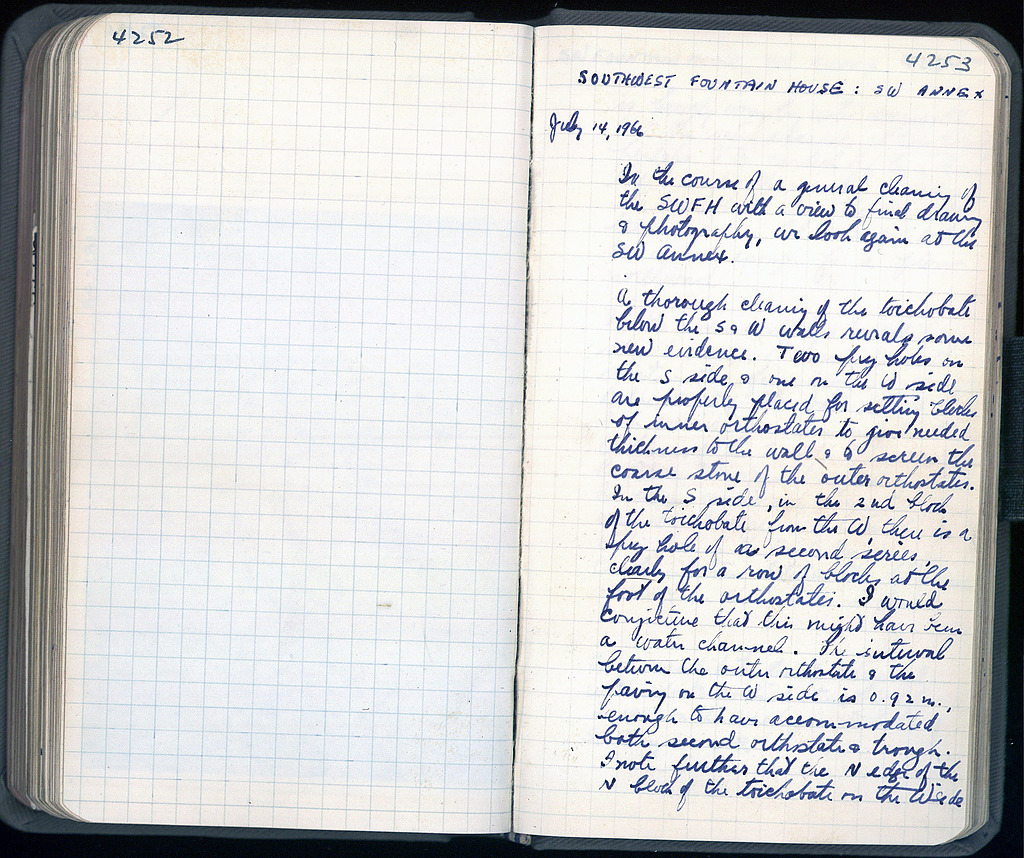 4252
4253
SOUTHWEST FOUNTAIN HOUSE : SW ANNEX
July 14, 1966
In the course of a general cleaning of
the SWFH with a view to final drawing
& photography, we look again at the
SW Annex.
A thorough cleaning of the toichobate
below the S & W walls reveals some
new evidence. Two pry holes on
the S side & one on the W side
are properly placed for setting blocks
of inner orthostates to give needed
thickness to the wall & to screen the
coarse stone of the outer orthostates.
In the S side, in the 2nd block
of the toichobate from the W, there is a
pry hole of a second series,
clearly for a row of blocks at the
foot of the orthostates. I would
conjecture that this might have been
a water channel. The interval
between the outer orthostate & the
paving on the W side is 0.92 m.,
enough to have accommodated
both second orthostate & trough.
I note further that the N edge of the
N block of the toichobate on the W side